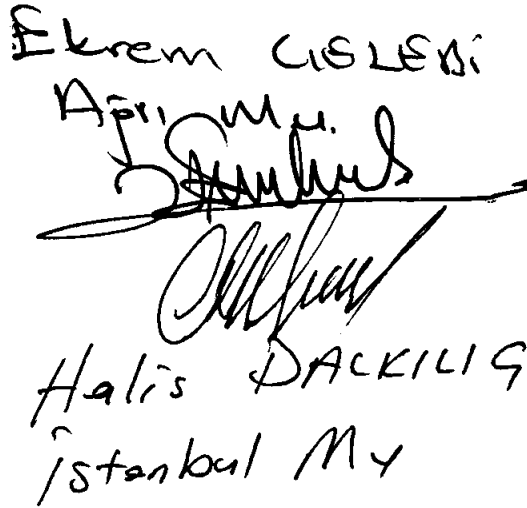 Ekrem ÇELEBİ
Ağrı Mv.
Halis DALKILIÇ
İstanbul Mv